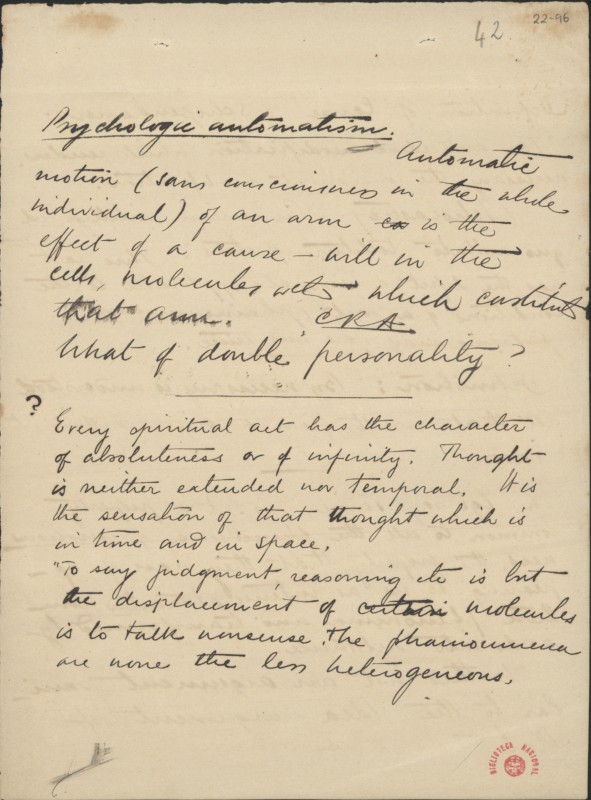 42
22-96
Psychologic automatism.
Automatic
motion (sans consciousness in the whole
individual) of an arm is the
effect of a cause – will in the
cells, molecules etc which constitute
that arm. CRA
What of double personality?
?
Every spiritual act has the character
of absoluteness or of infinity. Thought
is neither extended nor temporal. It is
the sensation of that thought which is
in time and in space.
"To say judgment, reasoning etc is but
the displacement of certain molecules
is to talk nonsense. The phainoumena
are none the less heterogeneous.
BIBLIOTECA NACIONAL